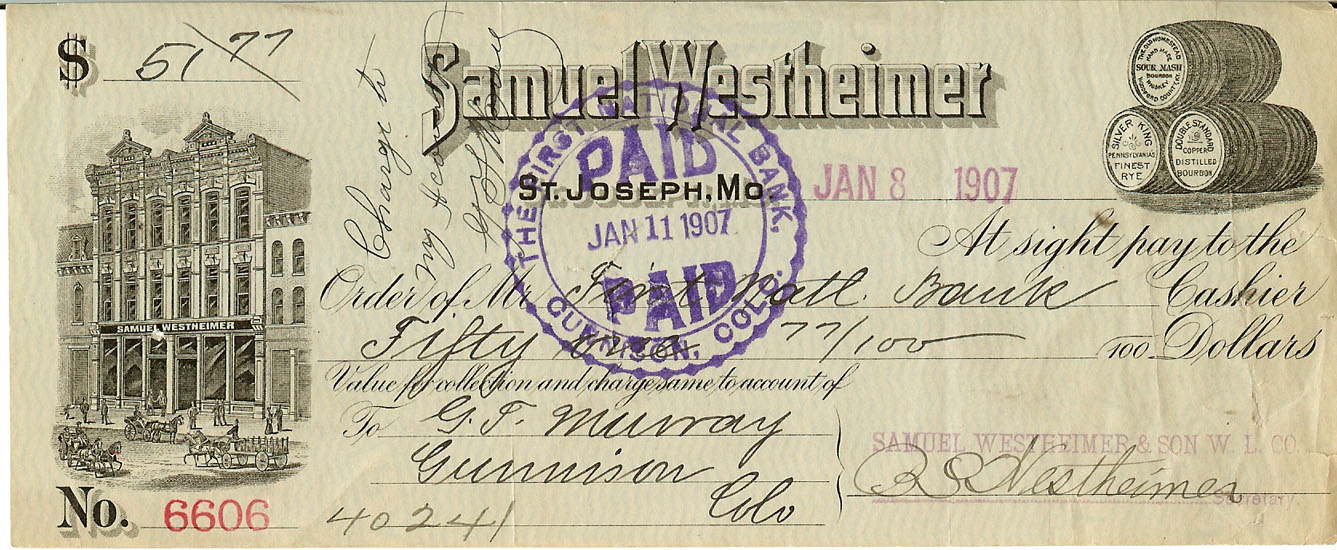 $ 51 77
Charge to
my Account
G F Murray
Samuel Westheimer
THE OLD HOMESTEAD
HAND MADE
SOUR MASH
BOURBON
WHISKEY
WOODFORD COUNTY, KY.
SILVER KING
PENNSYLVANIA'S
FINEST
RYE
DOUBLE STANDARD
COPPER
DISTILLED
BOURBON
ST. JOSEPH, MO. JAN 8 1907
THE FIRST NATIONAL BANK.
PAID
JAN 11 1907
PAID
GUNNISON, COLO.
At sight pay to the
Order of Mr First Natl. Bank Cashier
Fifty one 77/100 100 Dollars
Value for collection and charge same to account of
To G. F. Murray
Gunnison
Colo
SAMUEL WESTHEIMER & SON W. L. CO.
Westheimer
Secretary.
SAMUEL WESTHEIMER
No. 6606
40241